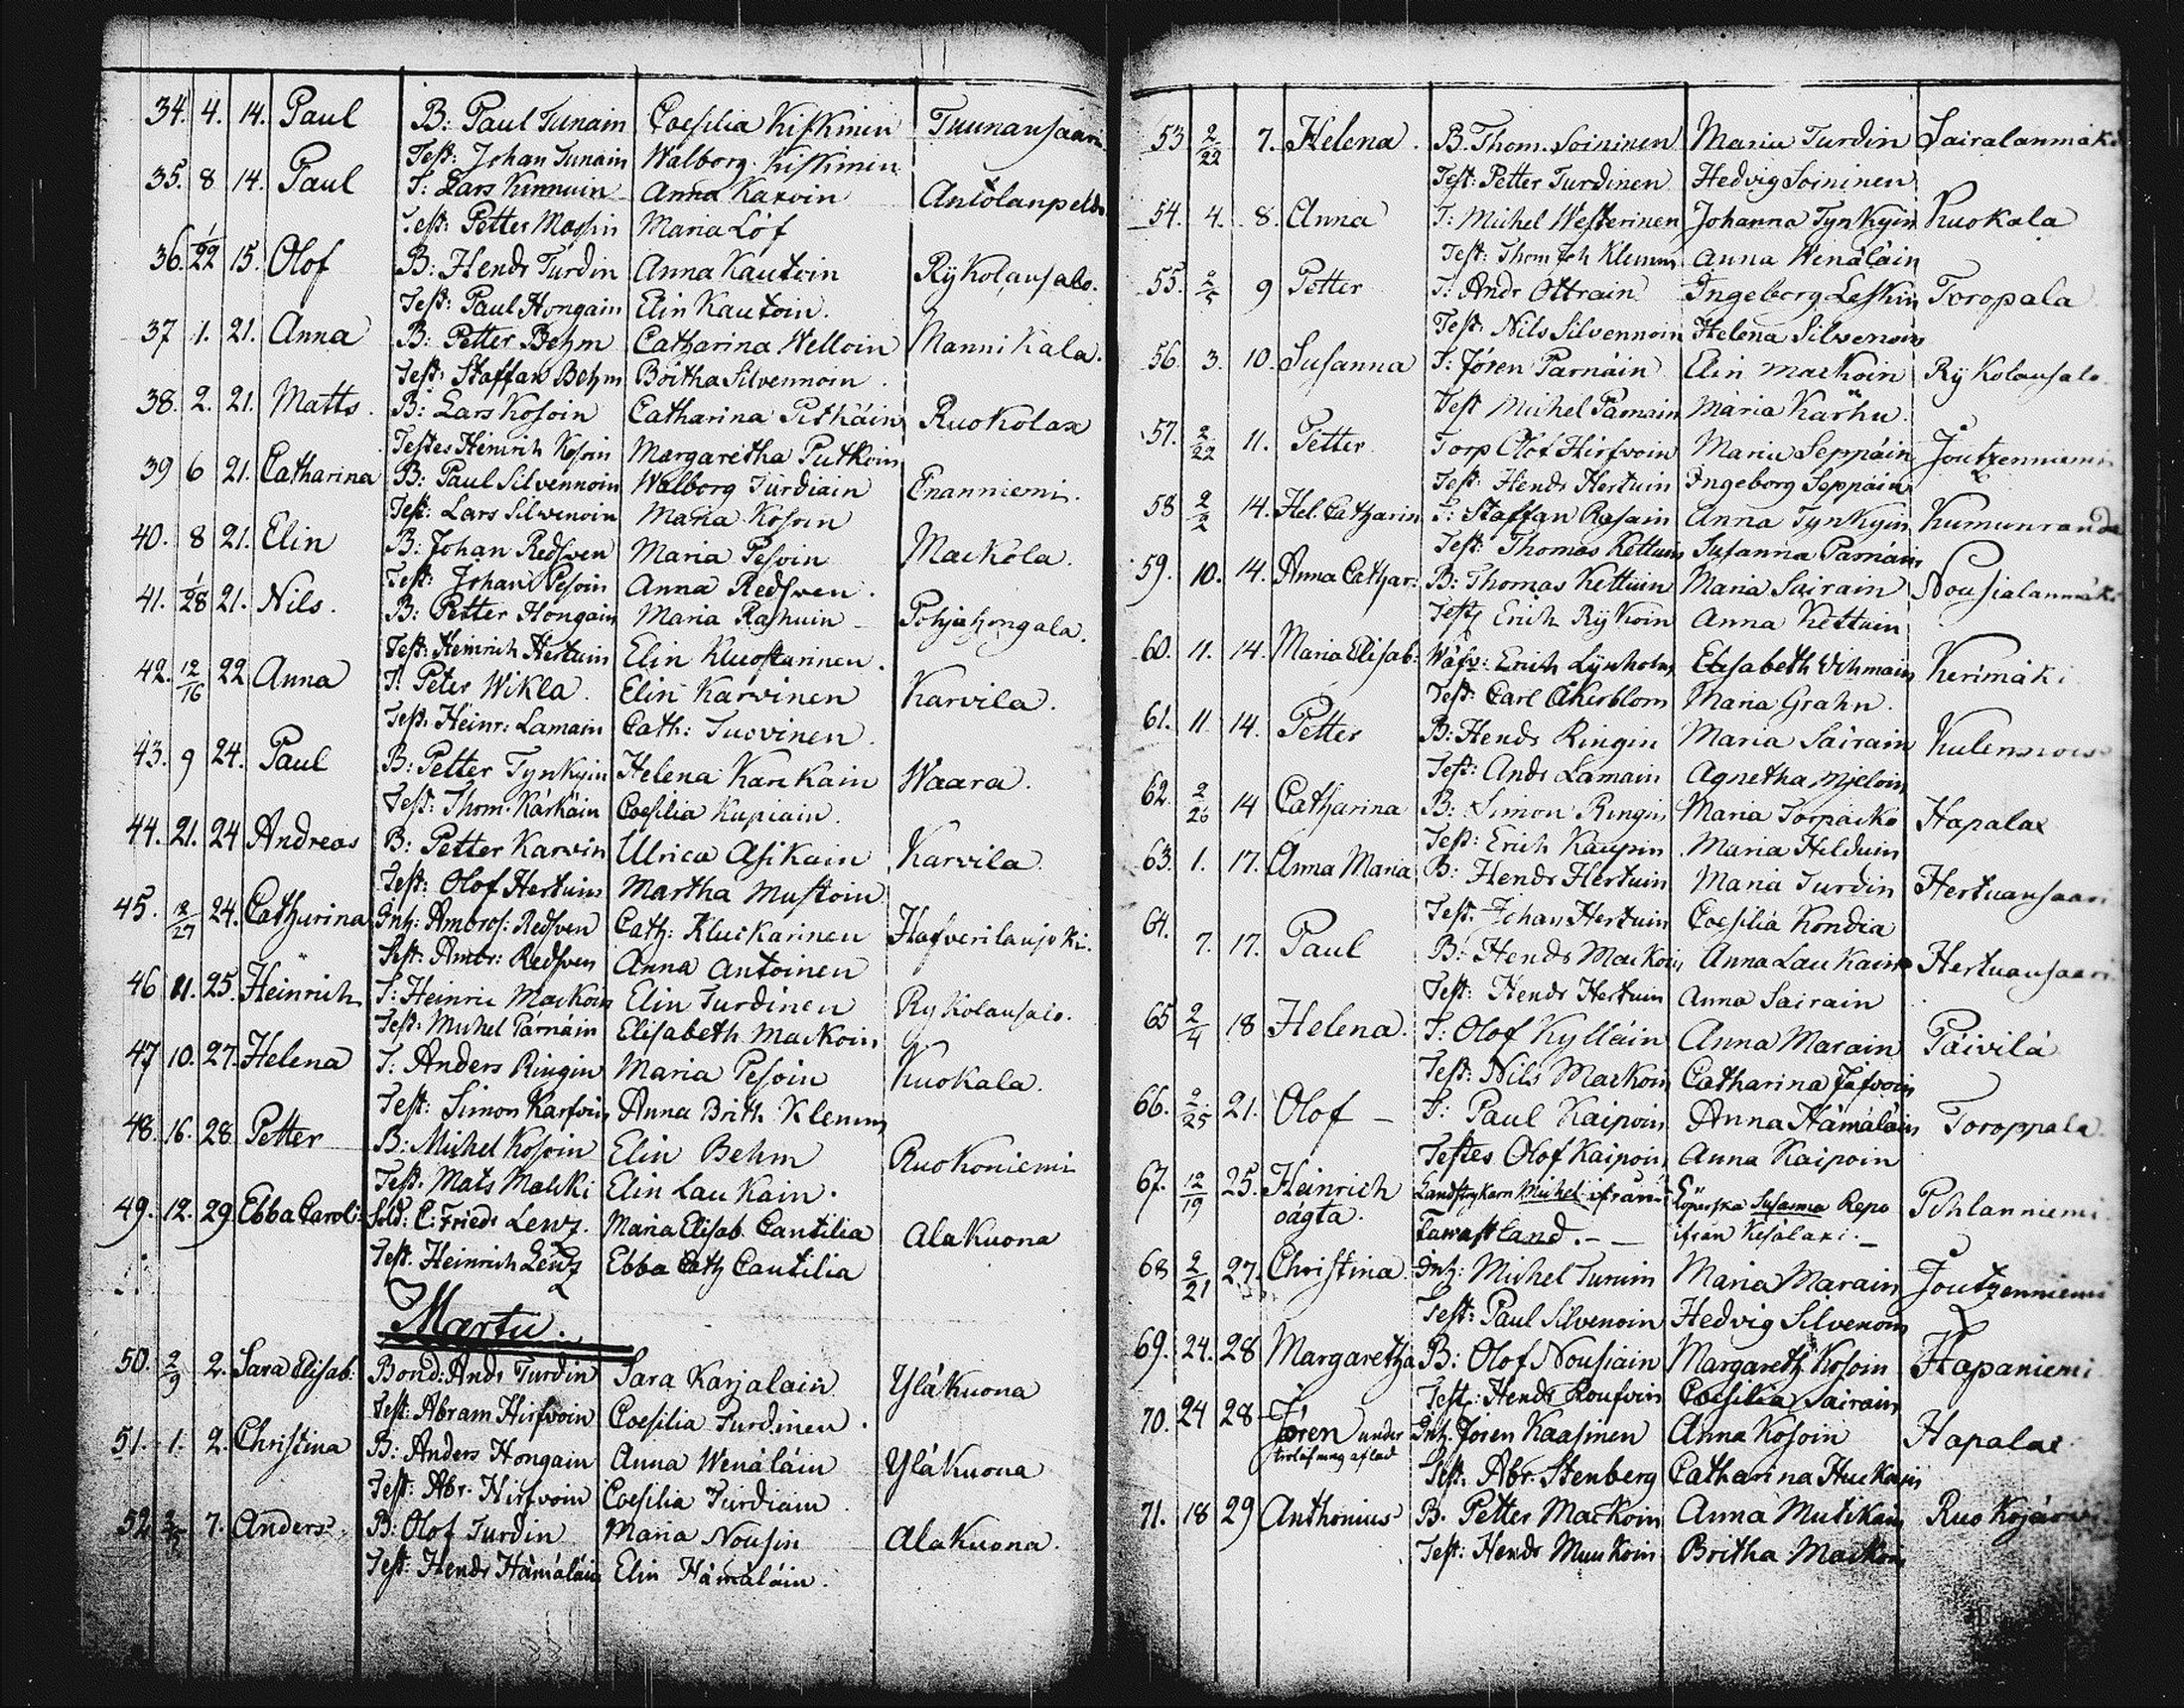 34. 4. 14. Paul B: Paul Tunain Coesilia Kiskinen Tuunansaari
Test: Johan Tunain Walborg Kiskinen
35. 8 14. Paul T: Lars Kinnuin Anna Karvin Antolanpeldo
Test: Petter Massin Maria Löf
36. 1/22 15. Olof B: Hendr Turdin Anna Kautoin Rykolansalo.
Test: Paul Hongain Elin Kautoin.
37 1. 21. Anna B: Petter Behm Catharina Welloin Mannikala.
Test: Staffan Behm Britha Silvennoin.
38. 2. 21. Matts. B: Lars Kosoin Catharina Pitkäin Ruokolax
Testes Heinrich Kosoin Margaretha Putkoin
39 6 21. Catharina B: Paul Silvennoin Walborg Turdiain Enanniemi.
Test: Lars Silvenoin Maria Kosoin
40. 8 21. Elin B: Johan Redsven Maria Pesoin Mackola.
Test: Johan Pesoin Anna Redsven.
41. 1/28 21. Nils. B: Petter Hongain Maria Rasnuin Pohjahongala.
Test: Heinrich Hertuin Elin Kluostarinen.
42. 12/16 22 Anna T. Peter Wikla. Elin Karvinen Karvila.
Test. Heinr: Lamain Cath: Tuovinen.
43. 9 24. Paul B: Petter Tynkyin Helena Karckain Waara.
Test: Thom. Kärkäin Coesilia Kupiain.
44. 21. 24 Andreas B: Petter Karvin Ulrica Asikain Karvila.
Test: Olof Hertuin Martha Mustoin
45. 12/27 24. Catharina Inh: Ambros: Redsven Cath: Kluckarinen Hafverilanjoki.
Test: Ambr: Redsven Anna Antoinen
46 21. 25. Heinrich T: Heinric Mackoin Elin Turdinen Rykolansalo.
Test: Michel Pärnäin Elisabeth Mackoin
47 10. 27. Helena T: Anders Ringin Maria Pesoin Kuokala.
Test: Simon Karfvin Anna Brith Klemm
48. 16. 28. Petter B: Michel Kosoin Elin Behm Ruokoniemi
Test. Mats Matski Elin Laukain.
49. 12. 29 Ebba Carol: Sold: C: Friedr Lentz. Maria Elisab. Cantilia Alakuona
Test. Heinrich Lentz Ebba Cath Cantilia
Martii.
50. 2/9 2. Sara Elisab: Bond: Andr Turdin Sara Karjalain Yläkuona
Test: Abram Hirfvoin Coesilia Turdinen.
51. 1. 2. Christina B: Anders Hongain Anna Wenäläin Yläkuona
Test: Abr. Hirfvoin Coesilia Turdiain.
52 7. Anders B: Olof Turdin Maria Nousin Alakuona.
Test: Hendr Hämäläin Elin Hämäläin.
53 2/22 7. Helena. B. Thom. Soininen Maria Turdin Sairalanmäki
Test: Petter Turdinen Hedvig Soininen
54. 4. 8. Anna T: Michel Westerinen Johanna Tynkyin Kuokala
Test: Thom Joh Klemm Anna Wenäläin
55. 2/5 9 Petter T: Andr Ottrain Ingeborg Leskin Toropala
Test: Nils Silvennoin Helena Silvenoin
56. 3. 10. Susanna T: Jören Parnäin Elin Mackoin Rykolansalo.
Test Michel Parnain Maria Karhu.
57. 2/22 11. Petter Torp Olof Hirfvoin Maria Seppäin Joutzenniemi
Test: Hendr Hertuin Ingeborg Seppäin
58 2/2 14. Hel. Catharin T: Staffan Rasain Anna Tynkyin Kumunranda
Test: Thomas Kettuin Susanna Parnäin
59. 10. 14. Anna Cathar: B: Thomas Kettuin Maria Sairain Nousialanmäki
Test Erich Rykoin Anna Kettuin
60. 11. 14. Maria Elisab: Wäfv: Erich Lynholm Elisabeth Vihmain Kerimäki
Test: Carl Åkerblom Maria Grahn.
61. 11. 14. Petter B: Hendr Ringin Maria Sairain
Test: Andr Lamain Agnetha Mjeloin
62. 2/26 14 Catharina B: Simon Ringin Maria Torpacko Hapalax
Test: Erich Kaupin Maria Hilduin
63. 1. 17. Anna Maria B: Hendr Hertuin Maria Turdin Hertuansaari
Test. Johan Hertuin Coesilia Kondia
64. 7. 17. Paul B: Hendr Mackoin Anna Laukain Hertuansaari
Test: Hendr Hertuin Anna Sairain
65 2/4 18 Helena. T: Olof Kylläin Anna Marain Päivilä
Test: Nils Mackoin Catharina Jäfvoin
66. 2/25 21. Olof – T: Paul Kaipoin Anna Hämäläin Toroppala.
Testes Olof Kaipoin Anna Kaipoin
67. 12/19 25. Heinrich Landstrykarn Michel ifrån Löperska Susanna Repo Pihlanniemi
oägta. Tawastland. – – ifrån Kesälaxi. –
68 2/21 27. Christina Inh: Michel Turuin Maria Marain Joutzenniemi
Test: Paul Silvenoin Hedvig Silvenoin
69. 24. 28 Margaretha B: Olof Nousiain Margareth Kosoin Hapaniemi
Test: Hendr Roufvin Coesilia Sairain
70. 24 28 Jören under Inh. Jören Kaasinen Anna Kosoin Hapalax
trolofning aflad Test: Abr. Stenberg Catharina Huckain
71. 18 29 Anthonius B. Petter Mackoin Anna Mutikain Ruokojärvi
Test: Hendr Muukoin Britha Mackoin